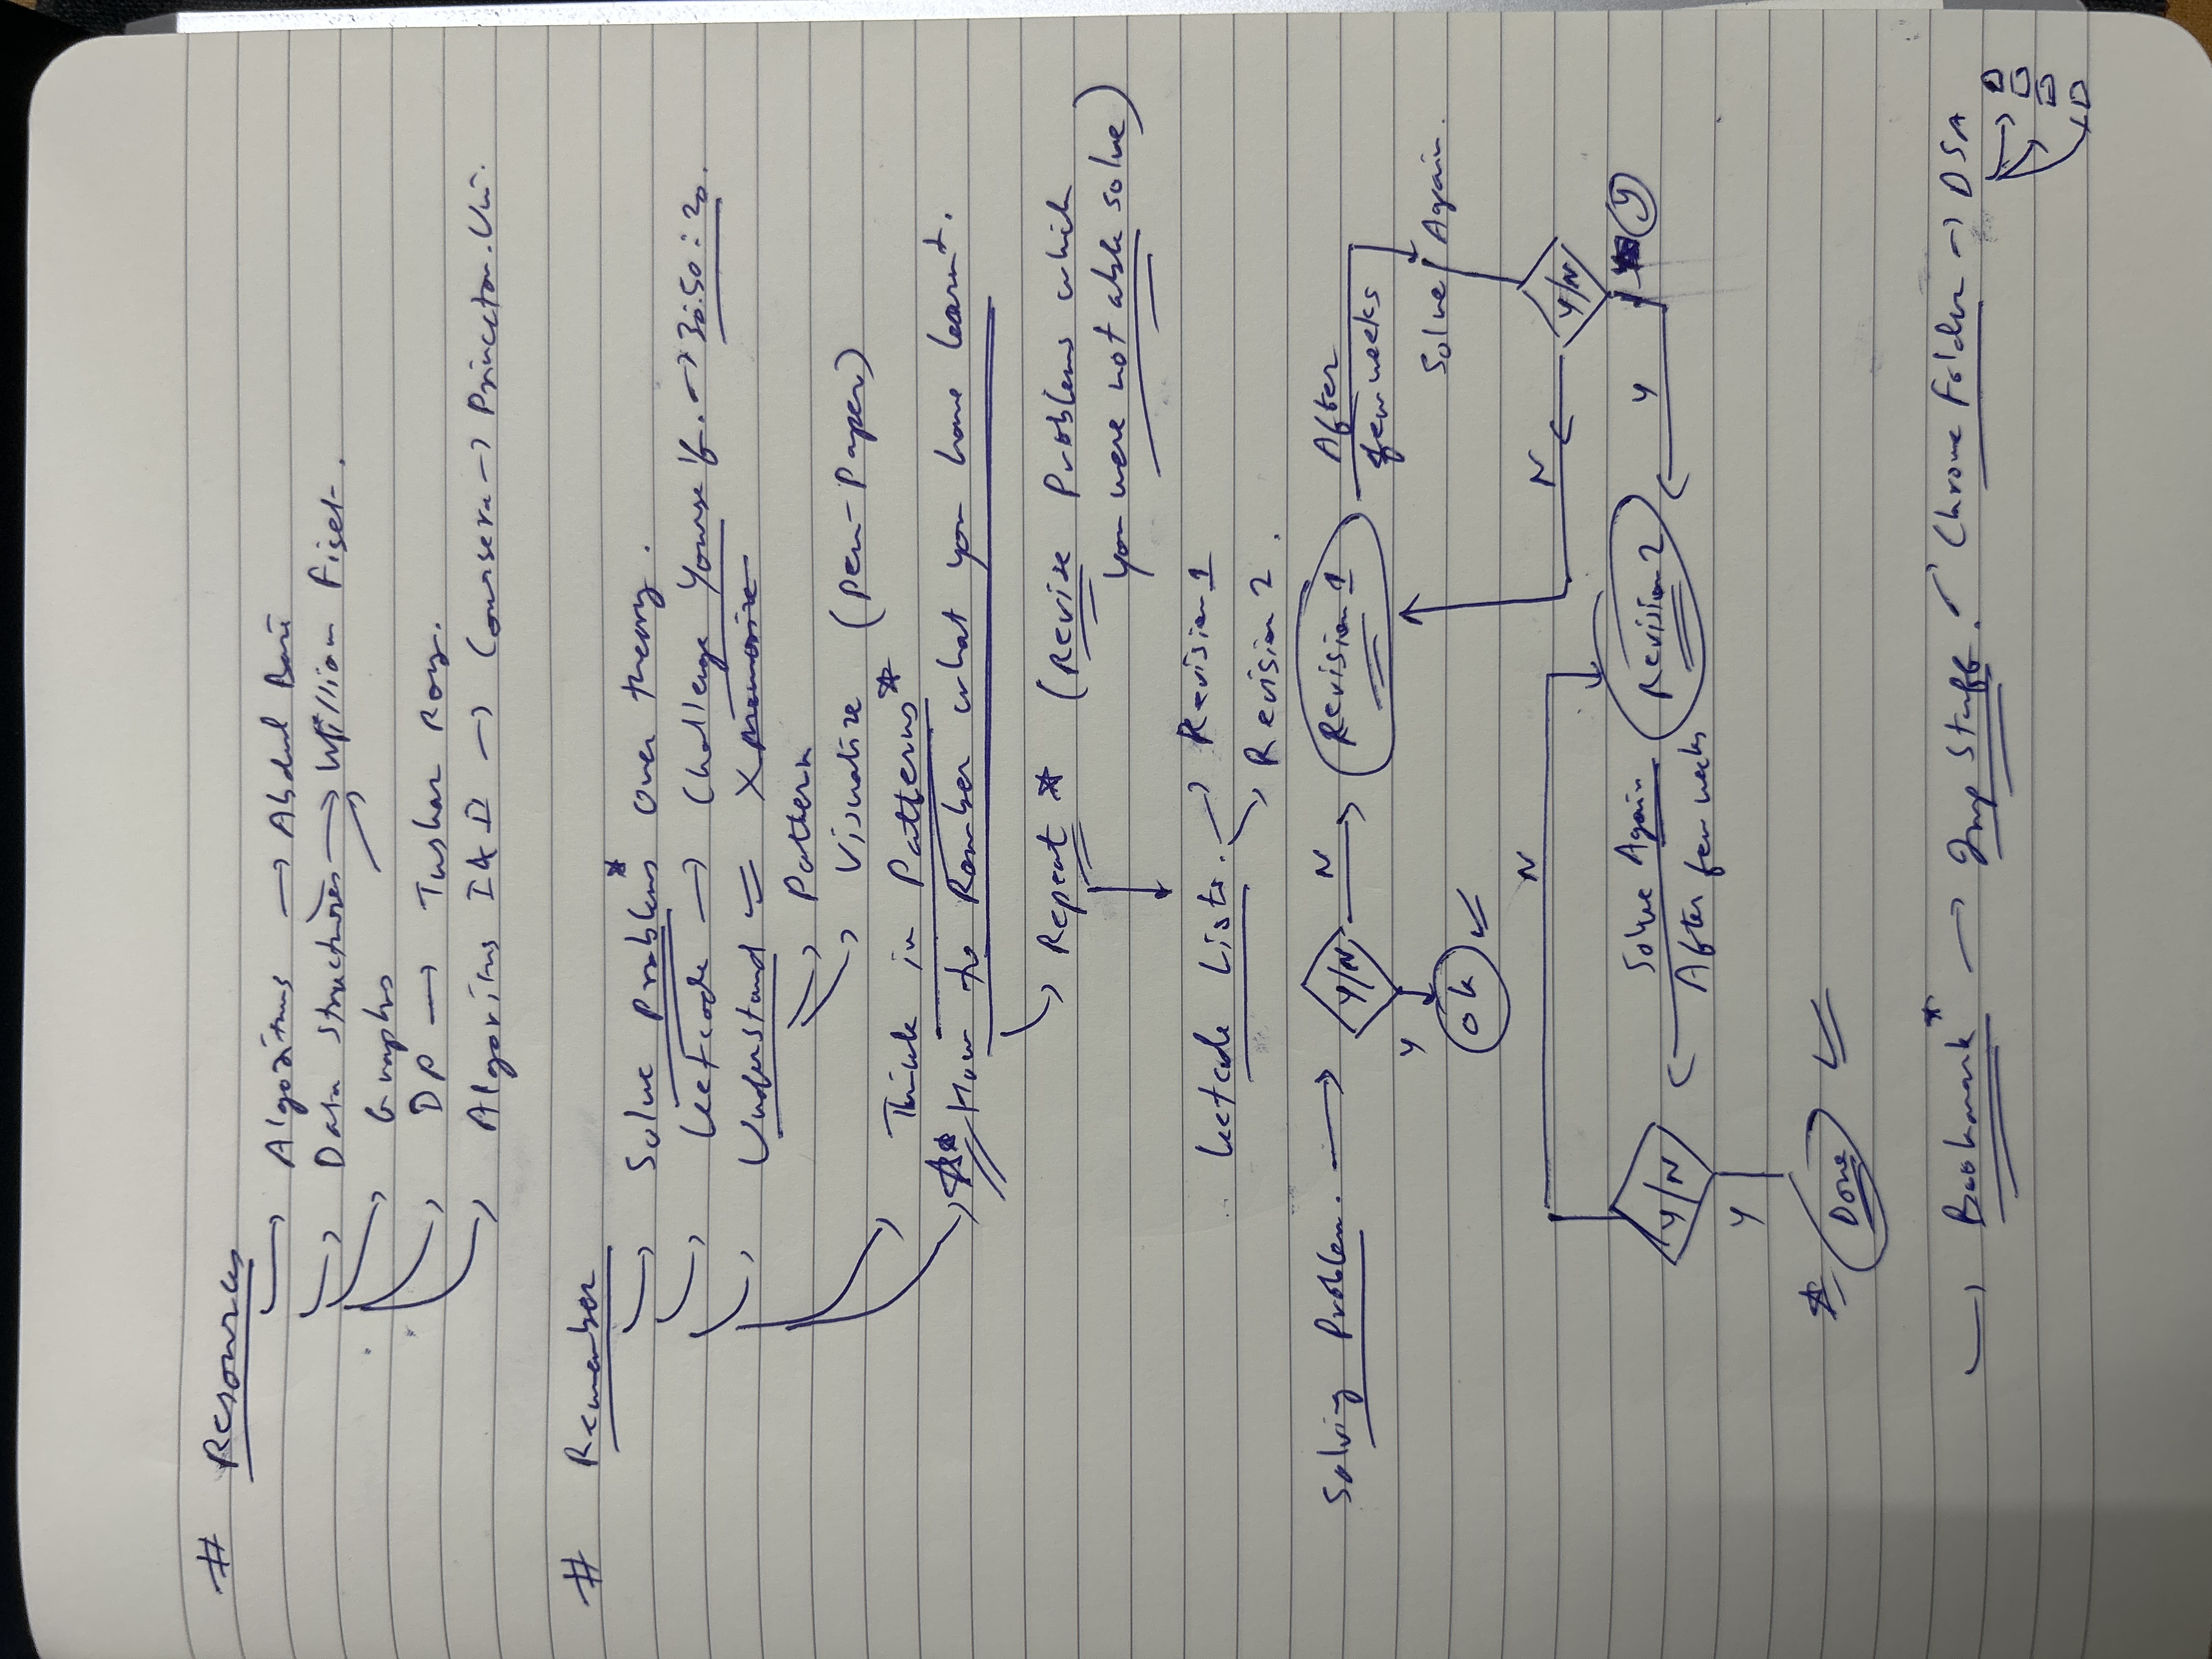 # Resources
→ Algorithms → Abdul Bari
→ Data Structures → William Fiset.
→ Graphs
→ DP → Tushar Roy.
→ Algorithms I & II → Coursera → Princeton. Uni.
# Remember
→ Solve Problems* over theory.
→ Leetcode → Challenge Yourself. → 30:50:20.
→ Understand ✓ X memorize
→ Pattern
→ Visualize (Pen-Paper)
→ Think in Patterns*
→ ** How to Rember what you have learnt.
→ Repeat * (Revise Problems which
you were not able solve)
Leetcode Lists. → Revision 1
→ Revision 2.
Solving Problem. → Y/N N → Revision 1 After
few weeks
Y
Solve Again.
Ok ✓
N
N Y/N
Y/N Solve Again Revision 2 Y Y
After few weeks
Y
* Done ✓
→ Bookmark* → Imp Stuff. → Chrome Folder → DSA